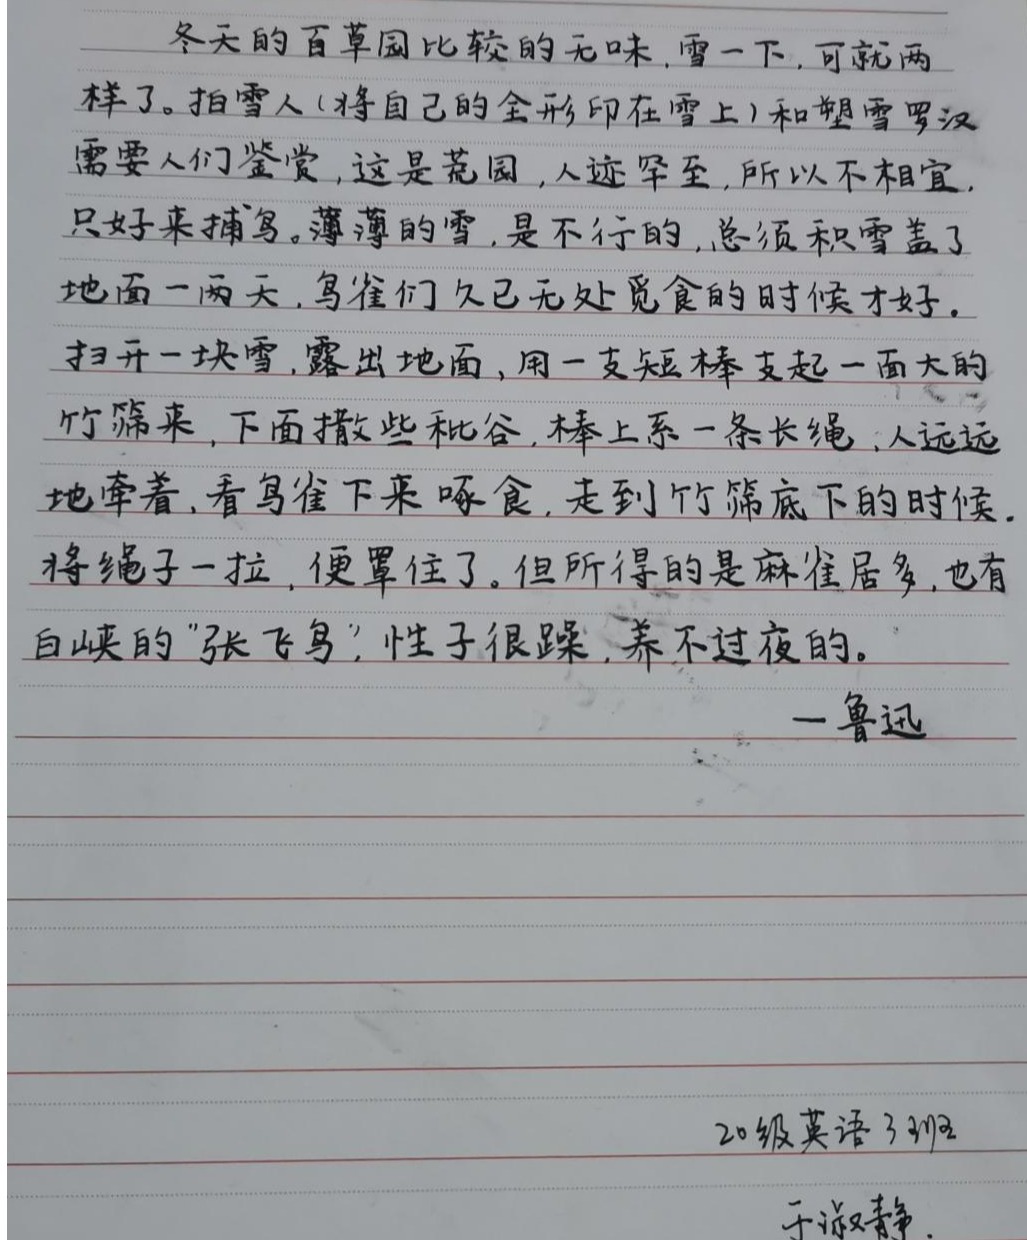 冬天的百草园比较的无味，雪一下，可就两
样了。拍雪人（将自己的全形印在雪上）和塑雪罗汉
需要人们鉴赏，这是荒园，人迹罕至，所以不相宜，
只好来捕鸟。薄薄的雪，是不行的，总须积雪盖了
地面一两天，鸟雀们久已无处觅食的时候才好。
扫开一块雪，露出地面，用一支短棒支起一面大的
竹筛来，下面撒些秕谷，棒上系一条长绳，人远远
地牵着，看鸟雀下来啄食，走到竹筛底下的时候，
将绳子一拉，便罩住了。但所得的是麻雀居多，也有
白峡的“张飞鸟”，性子很躁，养不过夜的。
一鲁迅
20级英语3班
于淑静.